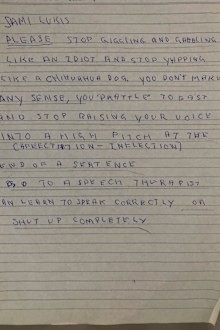 SAMI LUKIS
PLEASE STOP GIGGLING AND GABBLING
LIKE AN IDIOT AND STOP YAPPING
LIKE A CHIHUAHUA DOG YOU DON'T MAKE
ANY SENSE, YOU PRATTLE TO FAST
AND STOP RAISING YOUR VOICE
INTO A HIGH PITCH AT THE
(CORRECTION - INFLECTION)
END OF A SENTENCE
GO TO A SPEECH THERAPIST
CAN LEARN TO SPEAK CORRECTLY OR
SHUT UP COMPLETELY